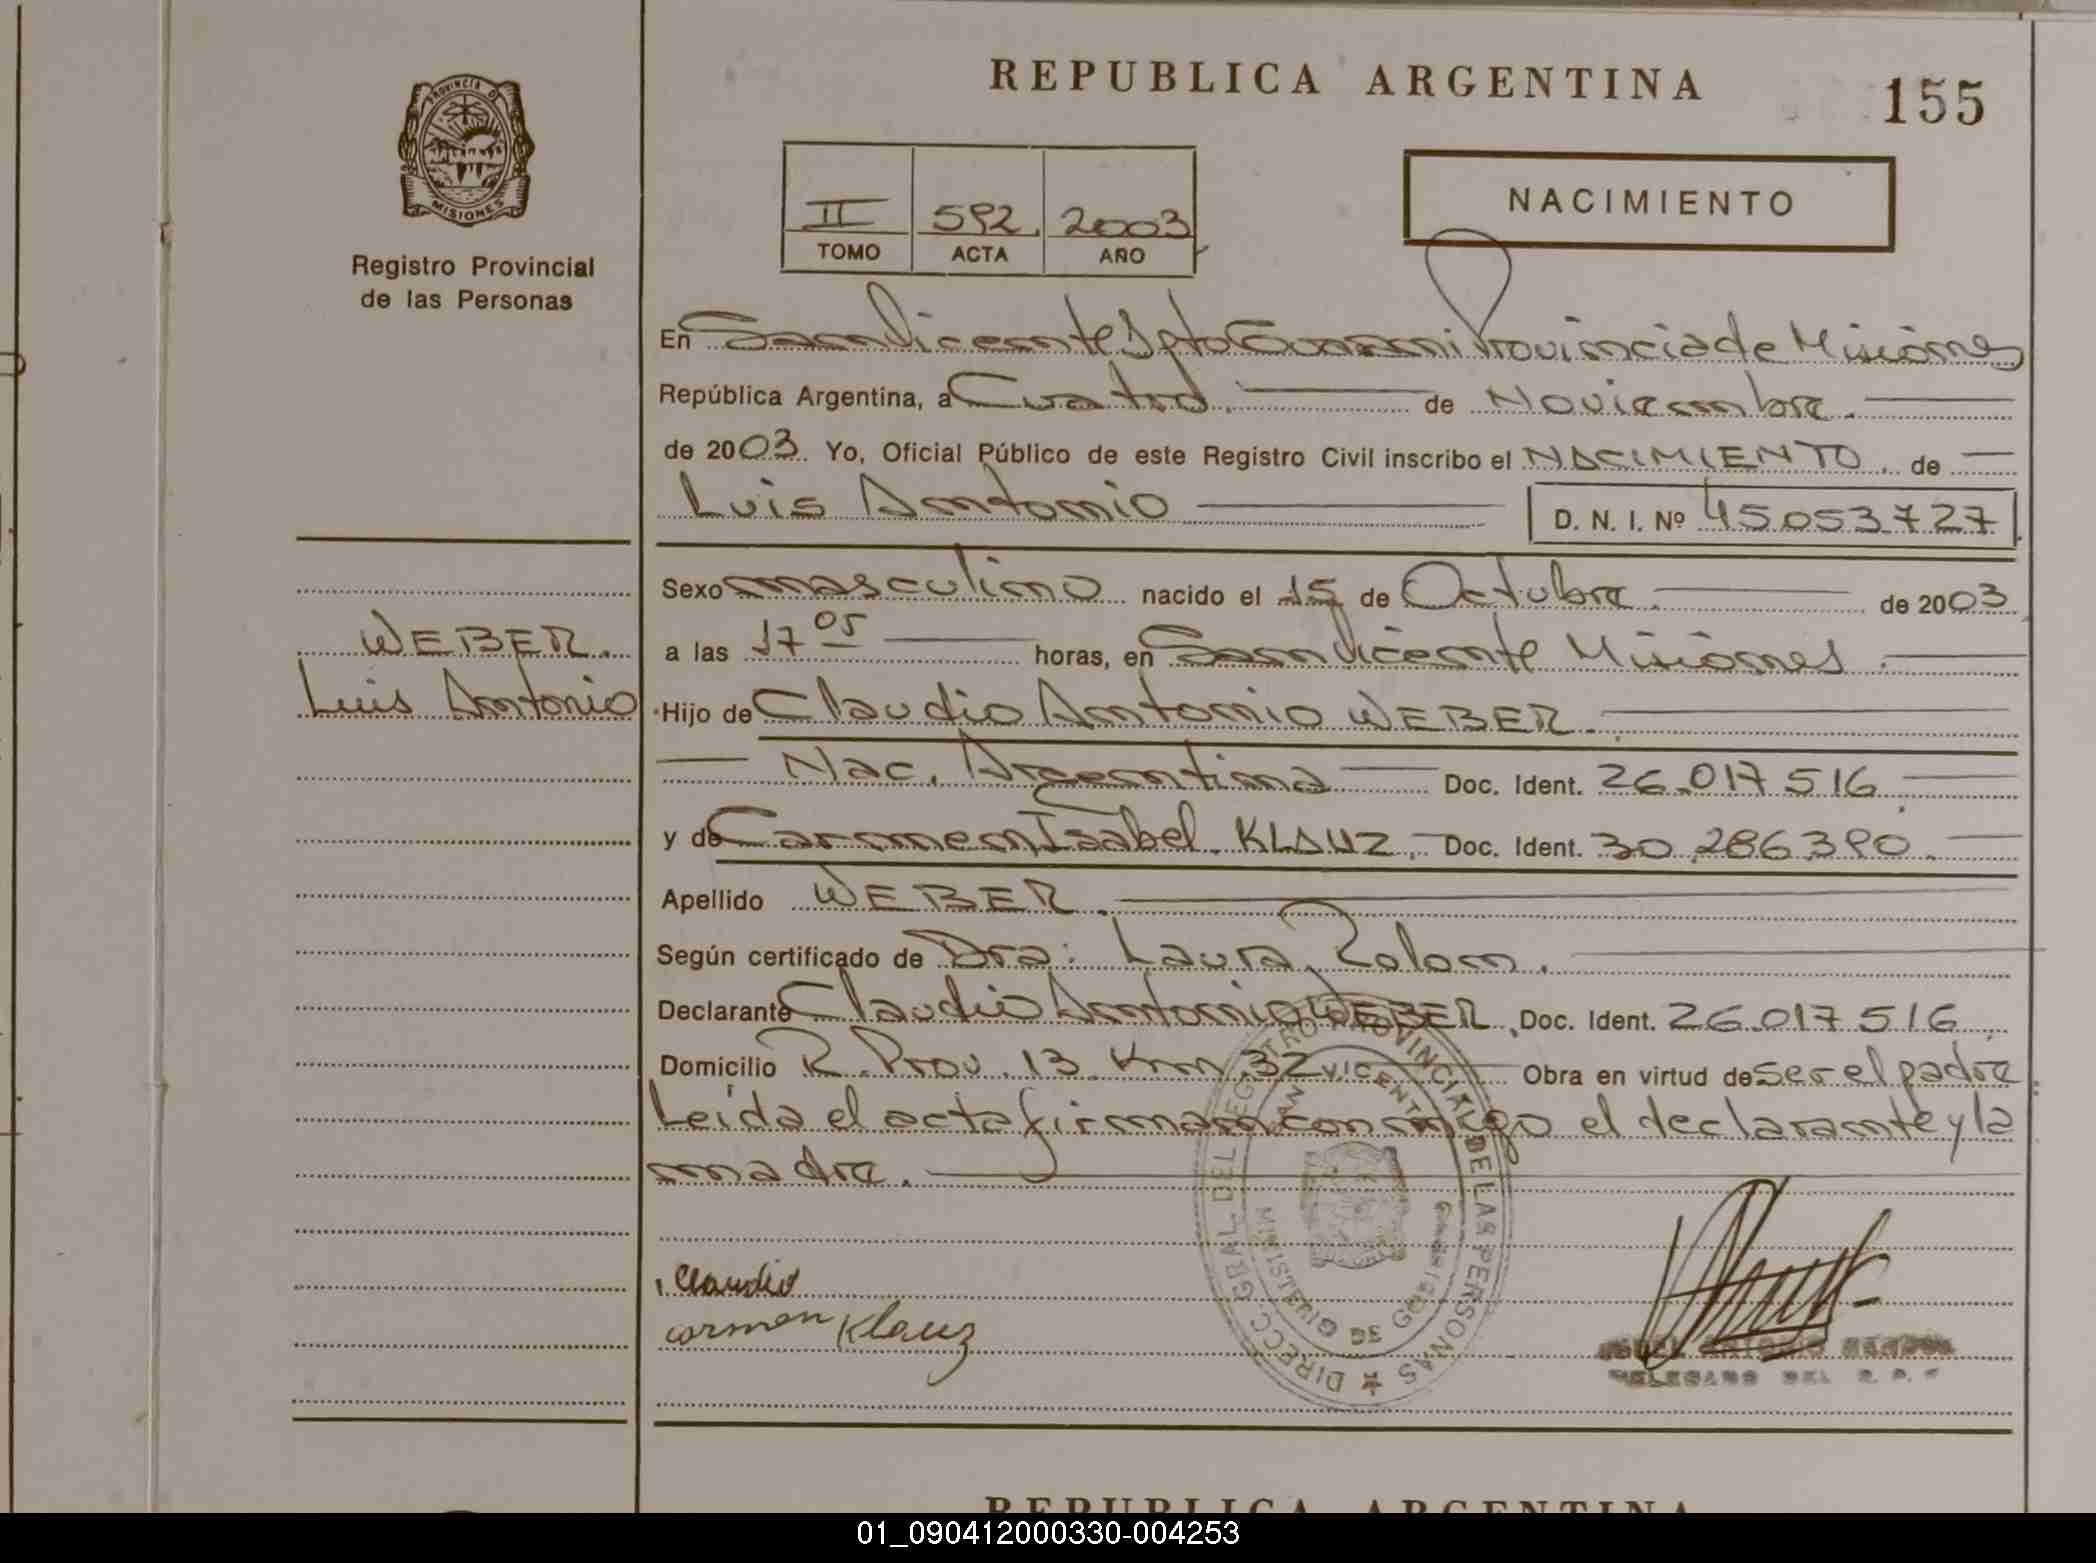 REPUBLICA ARGENTINA
155
PROVINCIA DE MISIONES
Registro Provincial
de las Personas
II 592 2003
TOMO ACTA AÑO
NACIMIENTO
En San Vicente Dpto Guarani Provincia de Misiones
República Argentina, a Cuatro de Noviembre.
de 2003. Yo, Oficial Público de este Registro Civil inscribo el NACIMIENTO de
Luis Antonio D. N. I. Nº 45.053.727
Sexo masculino nacido el 15 de Octubre de 2003
WEBER.
Luis Antonio
a las 17 05 horas, en San Vicente Misiones.
Hijo de Claudio Antonio WEBER.
Nac. Argentina Doc. Ident. 26.017.516
y de Carmen Isabel KLAUZ, Doc. Ident. 30.286.390.
Apellido WEBER.
Según certificado de Dra: Laura Rolon.
Declarante Claudio Antonio WEBER, Doc. Ident. 26.017.516
Domicilio R. Prov. 13 Km 32 Obra en virtud de ser el padre
Leida el acta firman conmigo el declarante y la
madre.
DIRECC. GRAL. DEL REGISTRO PROVINCIAL DE LAS PERSONAS
SAN VICENTE
MINISTERIO DE GOBIERNO
Claudio
Carmen Klauz
DELEGADO DEL R. P.
REPUBLICA ARGENTINA
01_090412000330-004253